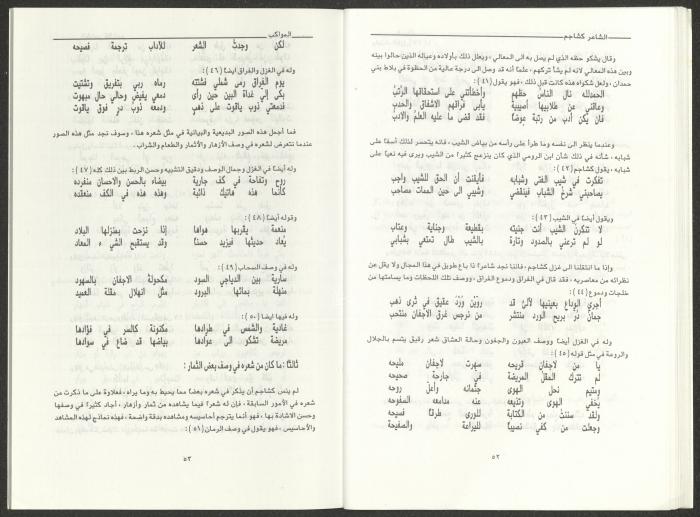 الشاعر كشاجم
وقال يشكو حظه الذي لم يصل به الى المعالي ، ويعلل ذلك بأولاده وعياله الذين حالوا بينه
وبين هذه المعالي لانه لم يشأ تركهم ، علماً أنه قد وصل الى درجة عالية من الحظوة في بلاط بني
حمدان ، ولعل شكواه هذه كانت قبل ذلك ، فهو يقول (٤١) :
الحمدلله نال الناس حظهم واخطأتني على استحقاقها الرتب
وعاقني عن طلابيها أصيبية يأبى فراقهم الاشفاق والحدب
فان يكن أدب من رتبة عوضاً فقد قضى ما عليه العلم والادب
وعندما ينظر الى نفسه وما طرأ على رأسه من بياض الشيب ، فانه يتحسر لذلك أسفاً على
شبابه ، شأنه في ذلك شأن ابن الرومي الذي كان ينزعج كثيراً من الشيب ويرى فيه نعياً على
شبابه ، يقول كشاجم (٤٢) :
تفكرت في شيب الفتى وشبابه فأيقنت أن الحق للشيب واجب
يصاحبني شرخ الشباب فينقضي وشيبي الى حين الممات مصاحب
ويقول أيضاً في الشيب (٤٣) :
لا تنكرن الشيب أنت جنيته بقطيعة وجناية وعتاب
لو لم ترعني بالصدود وتارة بالشيب طال تمتعي بشبابي
وإذا ما انتقلنا الى غزل كشاجم ، فاننا نجد شاعراً ذا باع طويل في هذا المجال ولا يقل عن
نظرائه من معاصريه ، فقد قال في الفراق ودموع الفراق ، ووصف تلك اللحظات وما يسامتها من
خلجات ودموع (٤٤) :
أجرى الوداع بعينيها لآلئ قد روين ورد عقيق في ثرى ذهب
جمان در بريح الورد منتشر من نرجس غرق الاجفان منتحب
وله في الغزل أيضاً ووصف العيون والجفون وحالة العشاق شعر رقيق يتسم بالجلال
والرومة في مثل قوله (٤٥) :
يا من لاجفان قريحه سهرت لاجفان مليحه
لم تترك المقل المريضة في جارحة صحيحه
ومتيم نحل الهوى جثمانه وأعل روحه
يخفي الهوى وتذيعه عنه مدامعه السفوحه
ولقد سننت من الكتابة للورى طرقاً فسيحه
وجعلت من كفي نصيباً لليراعة والصفيحة
٥٢
المواكب
لكن وجدت الشعر للآداب ترجمة فصيحه
وله في الغزل والفراق أيضاً (٤٦) :
يوم الفراق رمى شملي فشتته رماه ربي بتفريق وتشتيت
بكى إلي غداة البين حين رأى دمعي يفيض وحالي حال مبهوت
فدمعتي ذوب ياقوت على ذهب ودمعه ذوب در فوق ياقوت
فما أجمل هذه الصور البديعية والبيانية في مثل شعره هذا ، وسوف نجد مثل هذه الصور
عندما نتعرض لشعره في وصف الأزهار والأثمار والطعام والشراب .
وله أيضاً في الغزل وجمال الوصف ودقيق التشبيه وحسن الربط بين ذلك كله (٤٧) :
روح وتفاحة في كف جارية بيضاء بالحسن والاحسان منفرده
كأنما هذه هاتيك ذائبة وهذه هي في الكف منعقده
وقوله أيضاً (٤٨) :
منعمة يقربها هواها إذا نزحت بمنزلها البلاد
يعاد حديثها فيزيد حسناً وقد يستقبح الشيء المعاد
وله في وصف السحاب (٤٩) :
سارية بين الدياجي السود مكحولة الاجفان بالسهود
منهلة بمائها البرود مثل انهلال مقلة العميد
وله فيها أيضاً (٥٠) :
غادية والشمس في طرادها مكنونة كالسر في فؤادها
مريضة تشكو الى عوادها بياضها قد ضاع في سوادها
ثالثاً : ما كان من شعره في وصف بعض الثمار :
لم ينس كشاجم أن يذكر في شعره بعضاً مما يحيط به وما يراه ، فعلاوة على ما ذكرت من
شعره في الأمور السابقة ، فإن له شعراً فيما يشاهده من ثمار وأزهار ، أجاد كثيراً في وصفها
وحسن الاشادة بها ، فهو أنما يترجم أحاسيسه ومشاهده بدقة واضحة ، فهذه نماذج لهذه المشاهد
والأحاسيس ، فهو يقول في وصف الرمان (٥١) :
٥٣